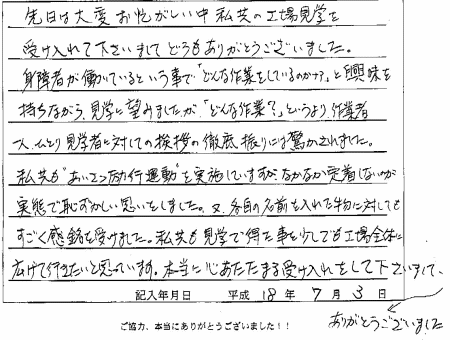 先日は大変お忙がしい中私共の工場見学を
受け入れて下さいましてどうもありがとうございました。
身障者が働いているという事で「どんな作業をしているのか??」と興味を
持ちながら、見学に望みましたが、「どんな作業?」というより、作業者
一人、ひとり見学者に対しての挨拶の徹底振りには驚かされました。
私共も"あいさつ励行運動"を実施していますが、なかなか定着しないのが
実態で恥ずかしい思いをしました。又、各自の名前を入れた物に対しても
すごく感銘を受けました。私共も見学で得た事を少しでも工場全体に
広げて行きたいと思っています。本当に心あたたまる受け入れをして下さいまして、
ありがとうございました
記入年月日 平成 18 年 7 月 3 日
ご協力、本当にありがとうございました!!